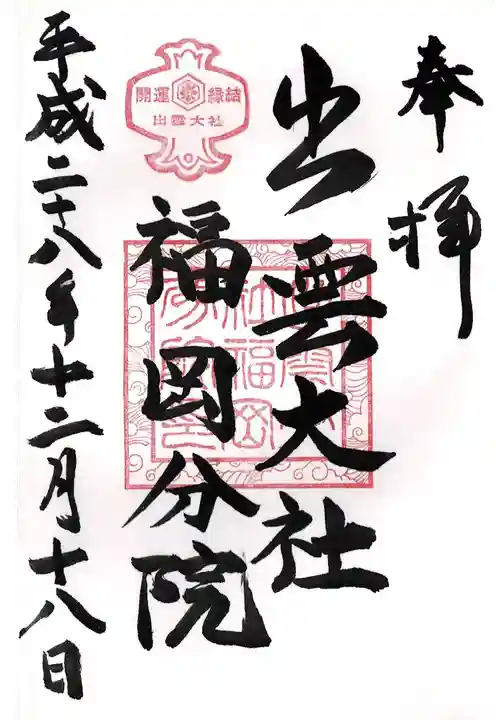 奉拝
出雲大社
福岡分院
平成二十八年十二月十八日
開運
縁結
出雲大社